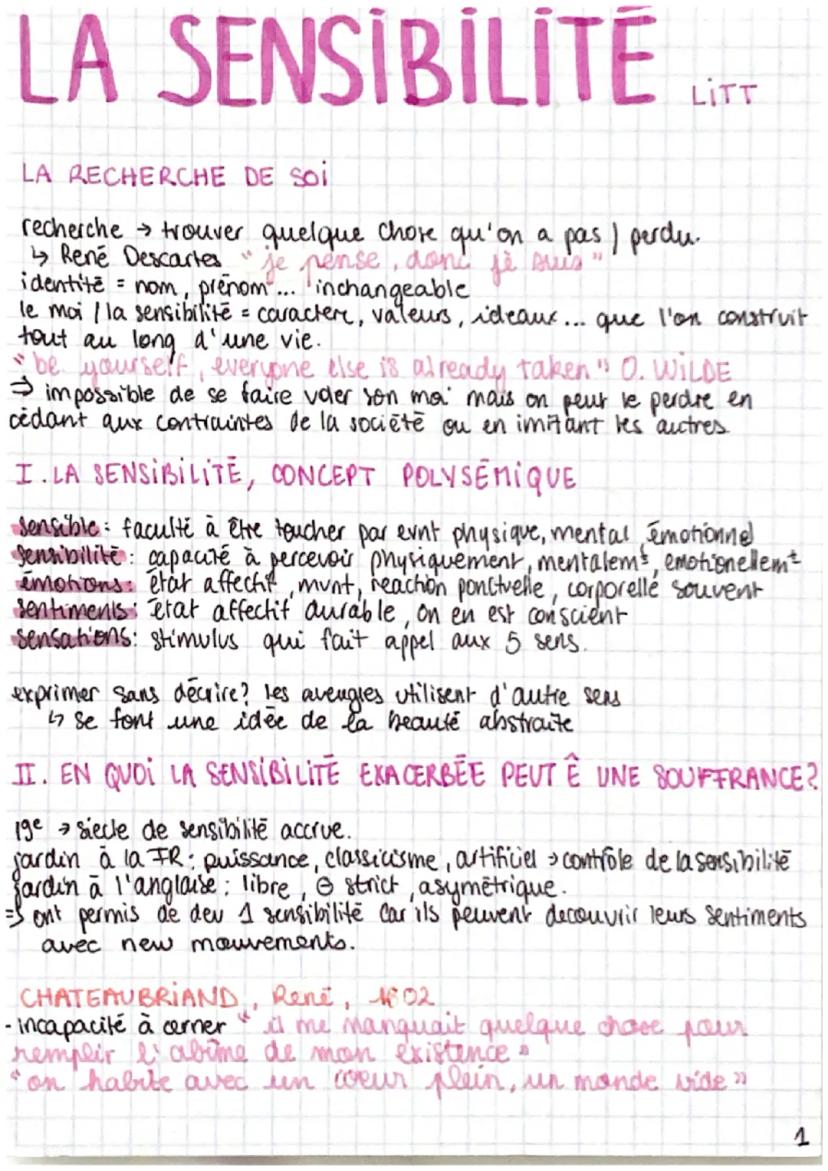 LA SENSIBILITÉ LITT
LA RECHERCHE DE SOI
recherche → trouver quelque chose qu'on a pas / perdu.
↳ René Descartes "je pense, donc je suis"
identité = nom, prénom... inchangeable
le moi / la sensibilité = caractere, valeurs, ideaux... que l'on construit
tout au long d'une vie.
"be yourself, everyone else is already taken" O. WILDE
⇒ impossible de se faire voler son moi mais on peut le perdre en
cédant aux contraintes de la société ou en imitant les autres
I. LA SENSIBILITÉ, CONCEPT POLYSÉMIQUE
sensible : faculté à être toucher par evnt physique, mental, émotionnel
sensibilité : capacité à percevoir physiquement, mentalemt, emotionellemt
émotions : état affectif, mvnt, reaction ponctuelle, corporelle souvent
sentiments : état affectif durable, on en est conscient
sensations : stimulus qui fait appel aux 5 sens.
exprimer sans décrire? les aveugles utilisent d'autre sens
↳ se font une idée de la beauté abstraite
II. EN QUOI LA SENSIBILITÉ EXACERBÉE PEUT Ê UNE SOUFFRANCE?
19e → siecle de sensibilité accrue.
jardin à la FR : puissance, classicisme, artificiel → contrôle de la sensibilité
jardin à l'anglaise : libre, ⊖ strict, asymétrique.
⇒ ont permis de dev 1 sensibilité car ils peuvent decouvrir leurs sentiments
avec new mouvements.
CHATEAUBRIAND, René, 1802
- incapacité à cerner "il me manquait quelque chose pour
remplir l'abîme de mon existence"
"on habite avec un coeur plein, un monde vide"
1